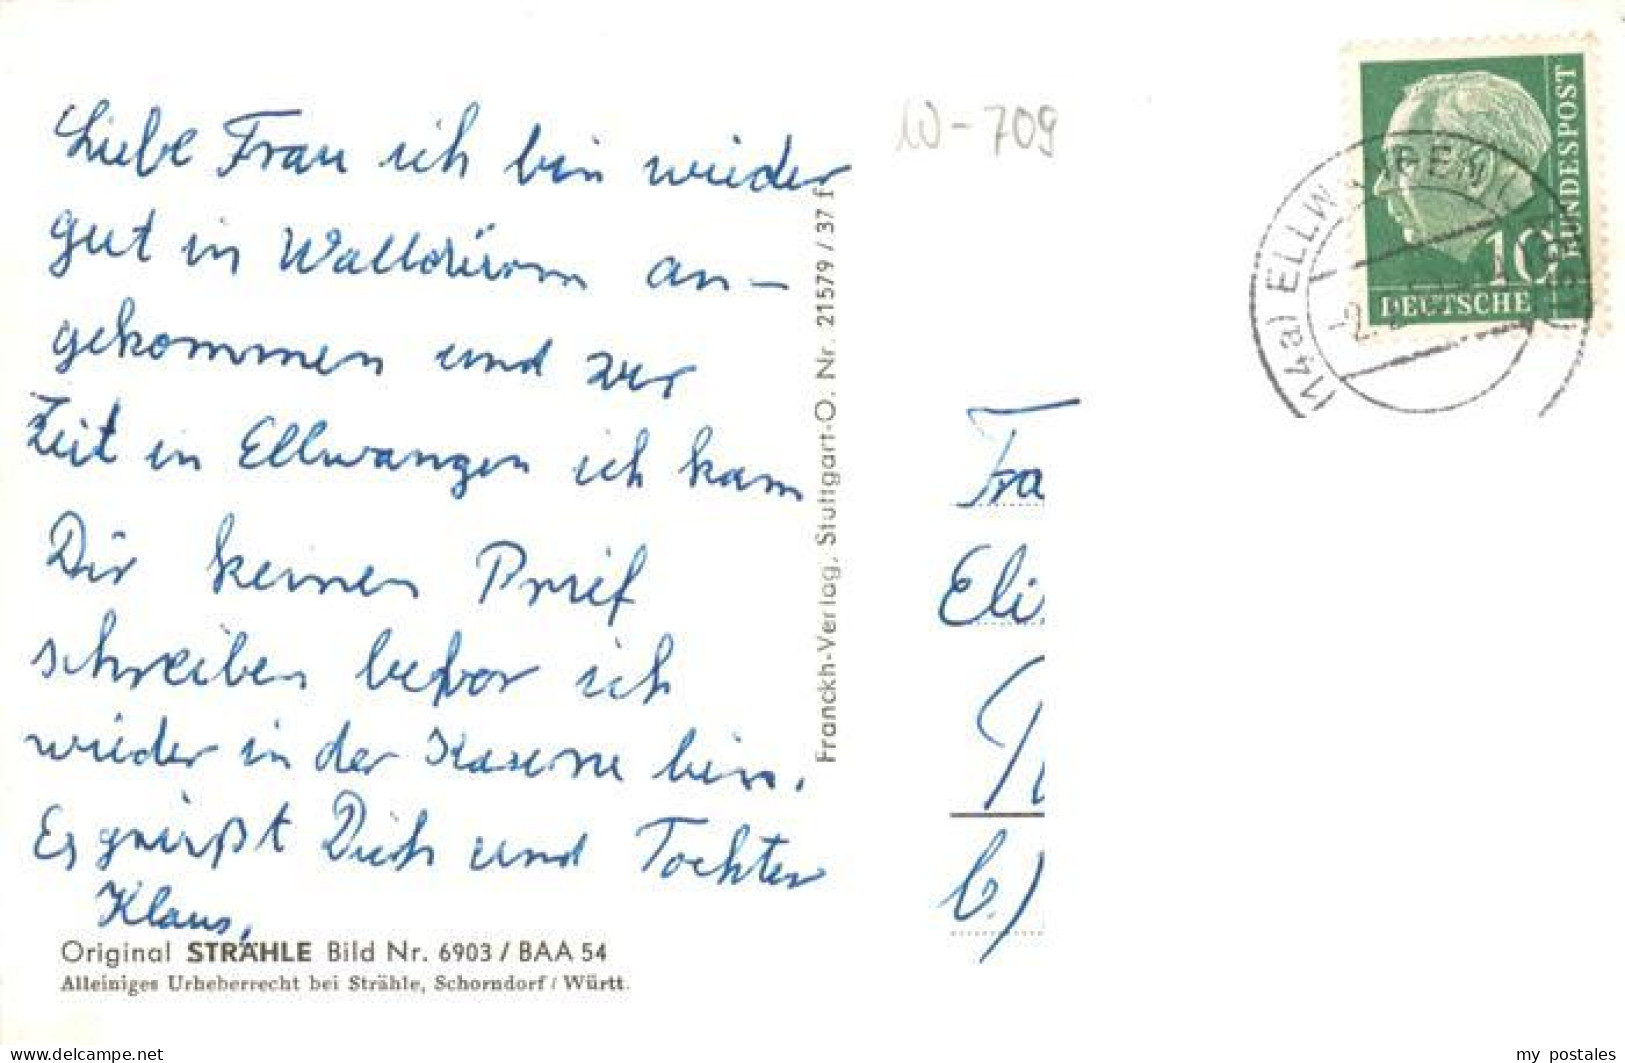 Liebe Frau ich bin wieder
gut in Walldürn an-
gekommen und zur
Zeit in Ellwangen ich kam
Dir keinen Brief
schreiben bevor ich
wieder in der Kaserne bin.
Es grüßt Dich und Tochter
Klaus,
Original STRÄHLE Bild Nr. 6903 / BAA 54
Alleiniges Urheberrecht bei Strähle, Schorndorf / Württ.
Franckh-Verlag, Stuttgart-O. Nr. 21579 / 37 f
W-709
DEUTSCHE
BUNDESPOST
10
(14a) ELLWANGEN
Fra
Eli
b.)
my_postales